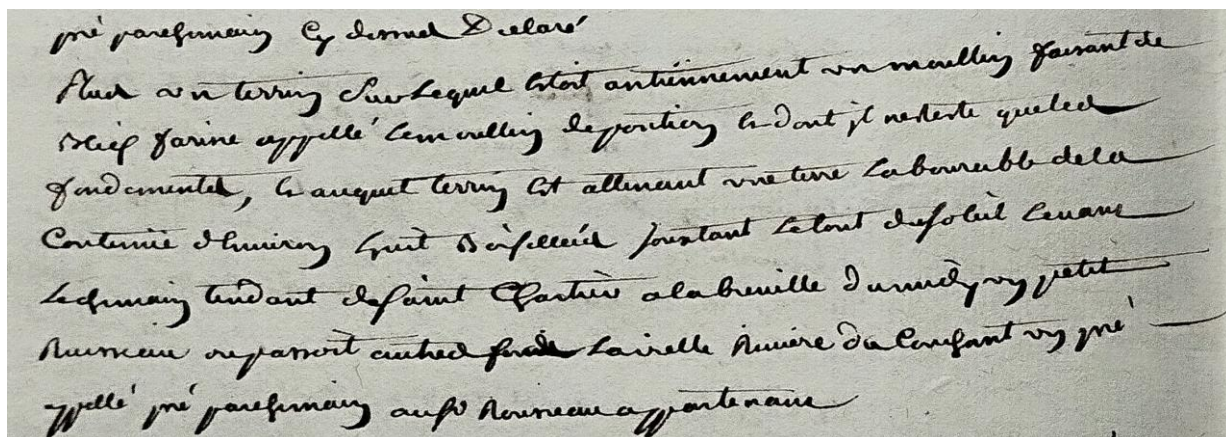 pré parchemain Cy dessus Declaré
Plus un terrin sur Lequel Etoit antiennement un moullin faisant de
Bled farine appellé Le moullin de position Et dont jl ne Reste que Les
fondements, Et auquel terrin Est attenant une terre Labourable de la
Contenüe d'Environ huit Boissellées joustant Le tout du soleil Levant
Le chemain tendant de saint Chartier a la breuille du midy un petit
Ruisseau ou passoit autres fois La vielle Riviere du Couchant un pré
appellé pré parchemain au sr Rousseau appartenant